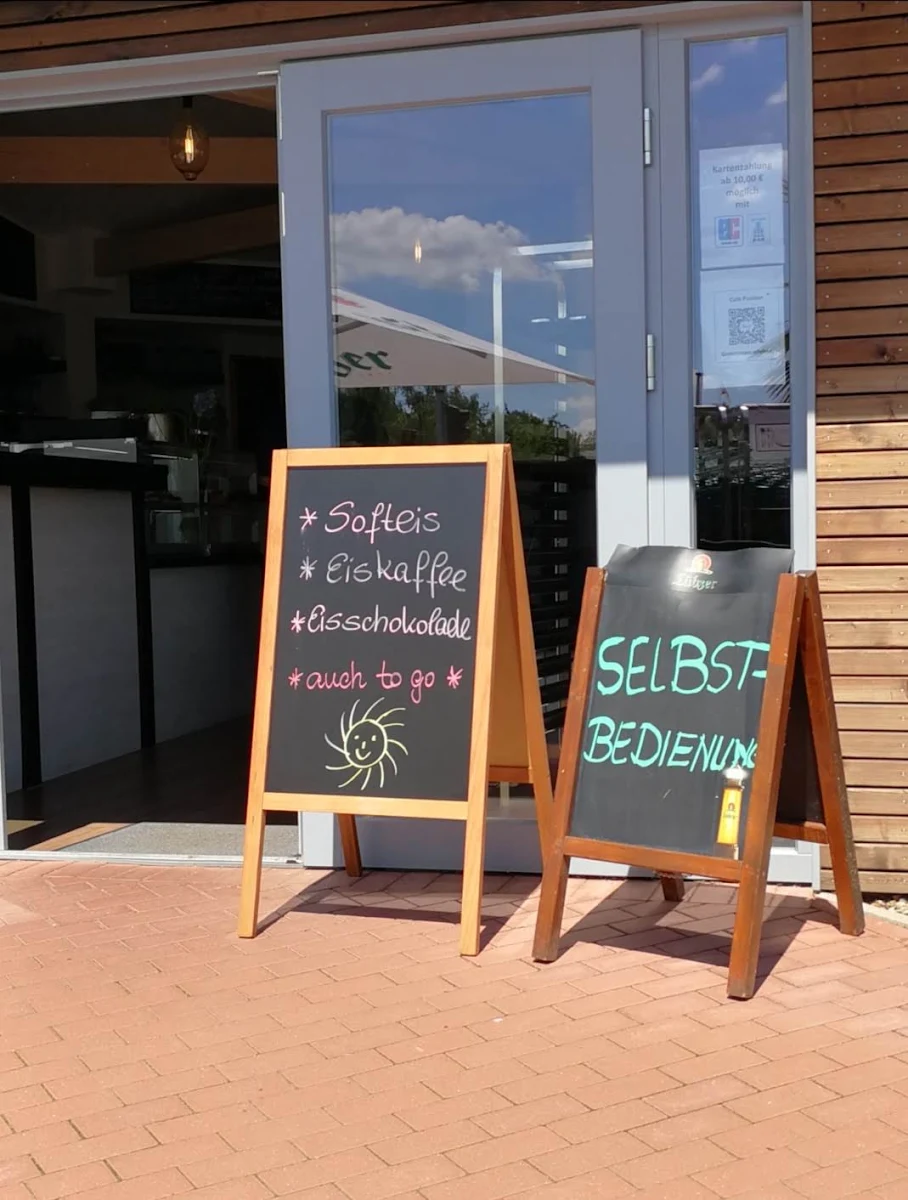 * Softeis
* Eiskaffee
* Eisschokolade
* auch to go *
SELBST-
BEDIENUNG
Kartenzahlung
ab 10,00 €
möglich
mit